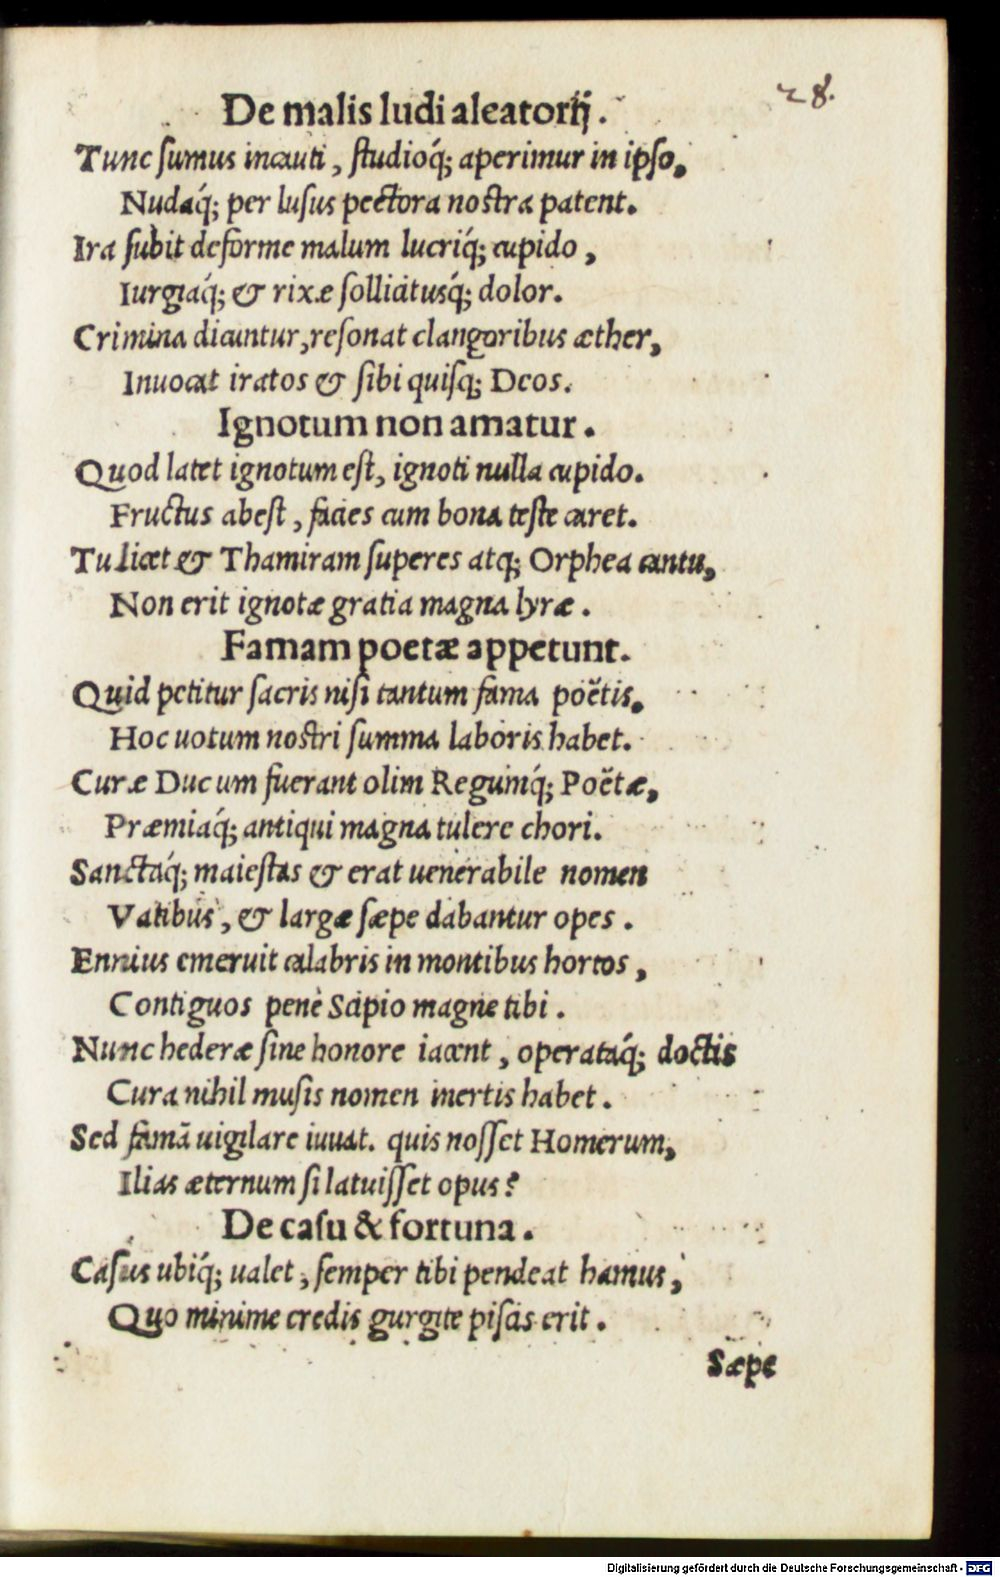 28.
De malis ludi aleatorij.
Tunc sumus incauti, studioq́; aperimur in ipso,
Nudaq́; per lusus pectora nostra patent.
Ira subit deforme malum lucriq́; cupido,
Iurgiaq́; & rixæ sollicitusq́; dolor.
Crimina dicuntur, resonat clangoribus æther,
Inuocat iratos & sibi quisq; Deos.
Ignotum non amatur.
Quod latet ignotum est, ignoti nulla cupido.
Fructus abest, facies cum bona teste caret.
Tu licet & Thamiram superes atq; Orphea cantu,
Non erit ignotæ gratia magna lyræ.
Famam poetæ appetunt.
Quid petitur sacris nisi tantum fama poëtis,
Hoc uotum nostri summa laboris habet.
Curæ Ducum fuerant olim Regumq́; Poëtæ,
Præmiaq́; antiqui magna tulere chori.
Sanctaq́; maiestas & erat uenerabile nomen
Vatibus, & largæ sæpe dabantur opes.
Ennius emeruit calabris in montibus hortos,
Contiguos penè Scipio magne tibi.
Nunc hederæ sine honore iacent, operataq́; doctis
Cura nihil musis nomen inertis habet.
Sed famā uigilare iuuat. quis nosset Homerum,
Ilias æternum si latuisset opus?
De casu & fortuna.
Casus ubiq́; ualet, semper tibi pendeat hamus,
Quo minime credis gurgite piscis erit.
Sæpe
Digitalisierung gefördert durch die Deutsche Forschungsgemeinschaft - DFG